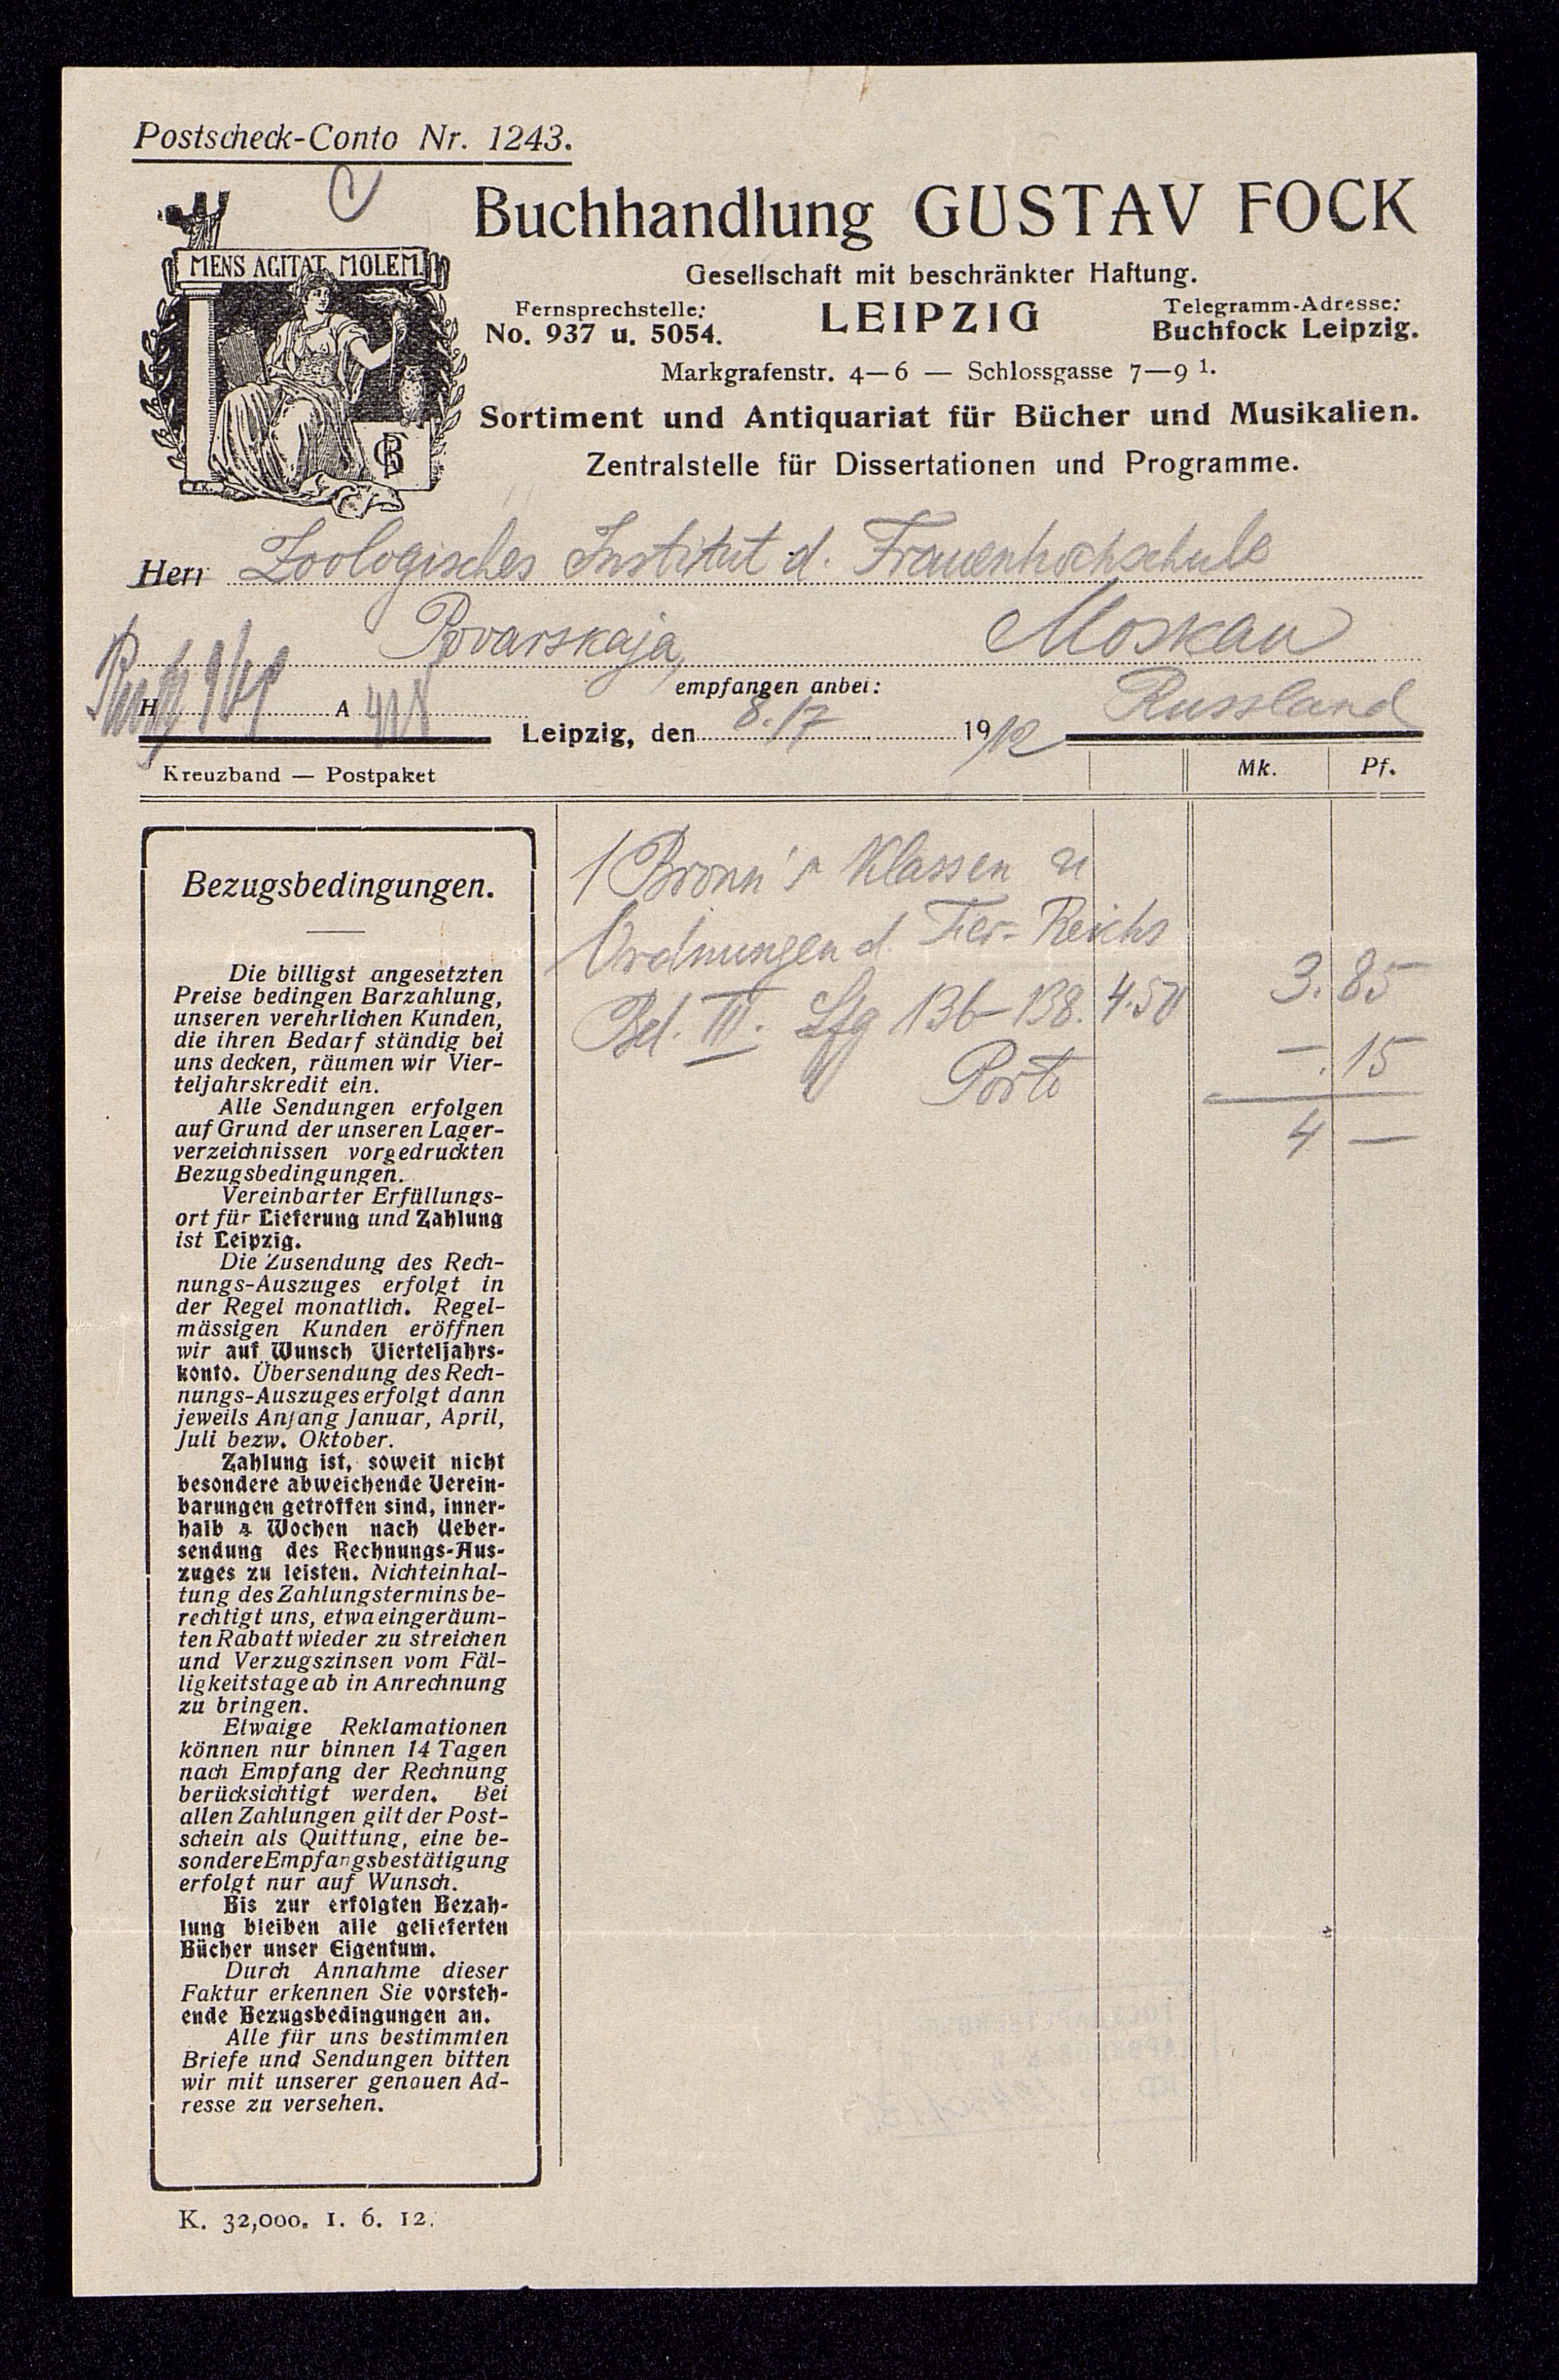 Postscheck-Conto Nr. 1243.
MENS AGITAT MOLEM
Buchhandlung GUSTAV FOCK
Gesellschaft mit beschränkter Haftung.
Fernsprechstelle:
No. 937 u. 5054.
LEIPZIG
Telegramm-Adresse:
Buchfock Leipzig.
Markgrafenstr. 4—6 — Schlossgasse 7—9 I.
Sortiment und Antiquariat für Bücher und Musikalien.
Zentralstelle für Dissertationen und Programme.
Herr Zoologisches Institut d. Frauenhochschule
Povarskaja, Moskau
empfangen anbei: Russland
H A
Leipzig, den 8./7 1912
Kreuzband — Postpaket
Mk. Pf.
1 Bronn's Klassen u
Ordnungen d. Tier-Reichs
Bd. III. Lfg 136-138. 4.50 3.85
Porto —.15
4 —
Bezugsbedingungen.
Die billigst angesetzten
Preise bedingen Barzahlung,
unseren verehrlichen Kunden,
die ihren Bedarf ständig bei
uns decken, räumen wir Vier-
teljahrskredit ein.
Alle Sendungen erfolgen
auf Grund der unseren Lager-
verzeichnissen vorgedruckten
Bezugsbedingungen.
Vereinbarter Erfüllungs-
ort für Lieferung und Zahlung
ist Leipzig.
Die Zusendung des Rech-
nungs-Auszuges erfolgt in
der Regel monatlich. Regel-
mässigen Kunden eröffnen
wir auf Wunsch Vierteljahrs-
konto. Übersendung des Rech-
nungs-Auszuges erfolgt dann
jeweils Anfang Januar, April,
Juli bezw. Oktober.
Zahlung ist, soweit nicht
besondere abweichende Verein-
barungen getroffen sind, inner-
halb 4 Wochen nach Ueber-
sendung des Rechnungs-Aus-
zuges zu leisten. Nichteinhal-
tung des Zahlungstermins be-
rechtigt uns, etwa eingeräum-
ten Rabatt wieder zu streichen
und Verzugszinsen vom Fäl-
ligkeitstage ab in Anrechnung
zu bringen.
Etwaige Reklamationen
können nur binnen 14 Tagen
nach Empfang der Rechnung
berücksichtigt werden. Bei
allen Zahlungen gilt der Post-
schein als Quittung, eine be-
sondere Empfangsbestätigung
erfolgt nur auf Wunsch.
Bis zur erfolgten Bezah-
lung bleiben alle gelieferten
Bücher unser Eigentum.
Durch Annahme dieser
Faktur erkennen Sie vorsteh-
ende Bezugsbedingungen an.
Alle für uns bestimmten
Briefe und Sendungen bitten
wir mit unserer genauen Ad-
resse zu versehen.
K. 32,000. 1. 6. 12.